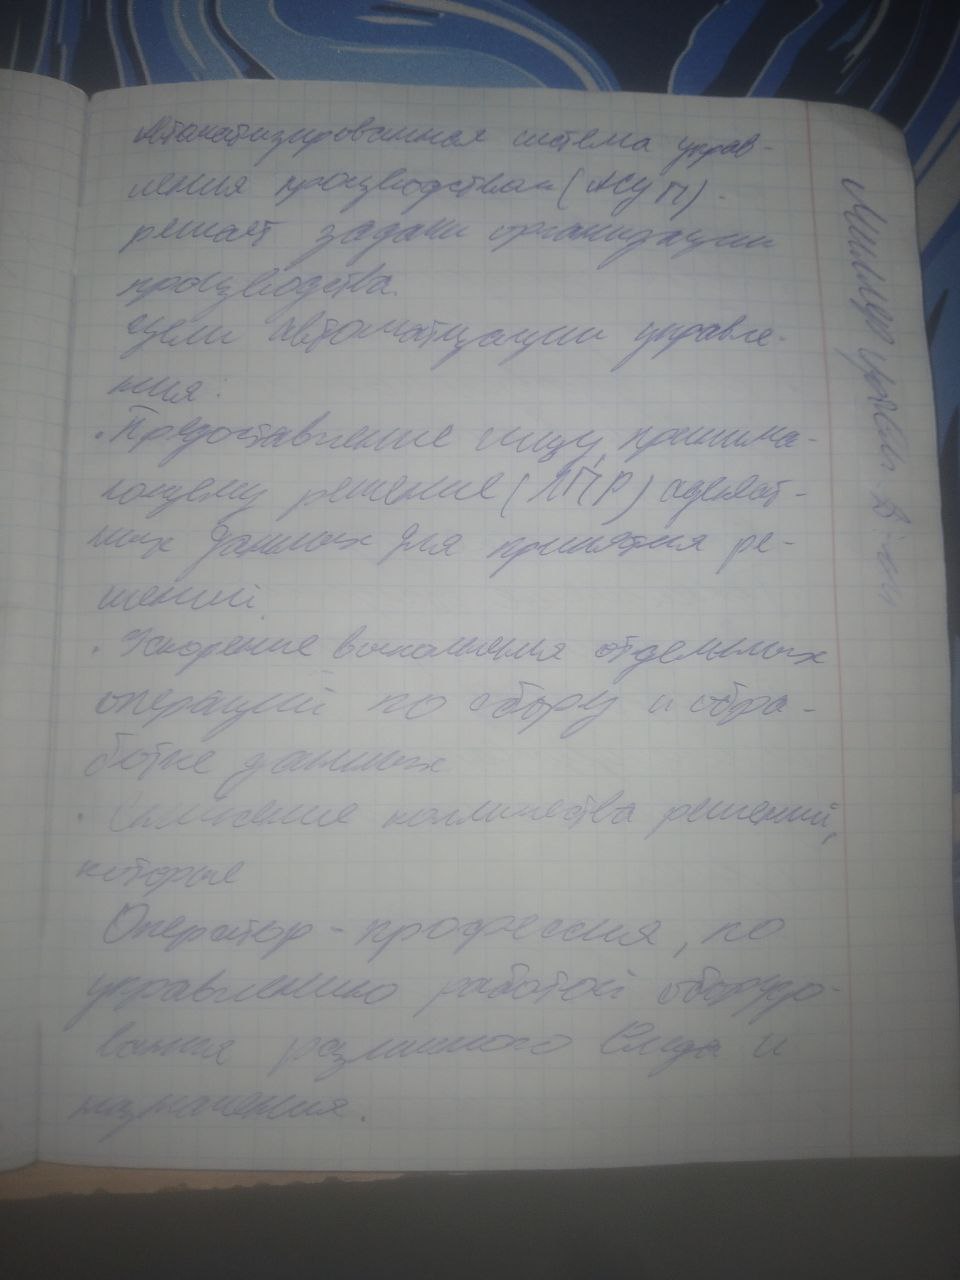 Автоматизированная система управ-
ления производством (АСУП).
решает задачи организации
производства.
Цели автоматизации управле-
ния:
• Предоставление лицу, принима-
ющему решение (ЛПР) адекват-
ных данных для принятия ре-
шений
• Ускорение выполнения отдельных
операций по сбору и обра-
ботке данных
• Снижение количества решений,
которые
Оператор - профессия, по
управлению работой оборудо-
вания различного вида и
назначения.